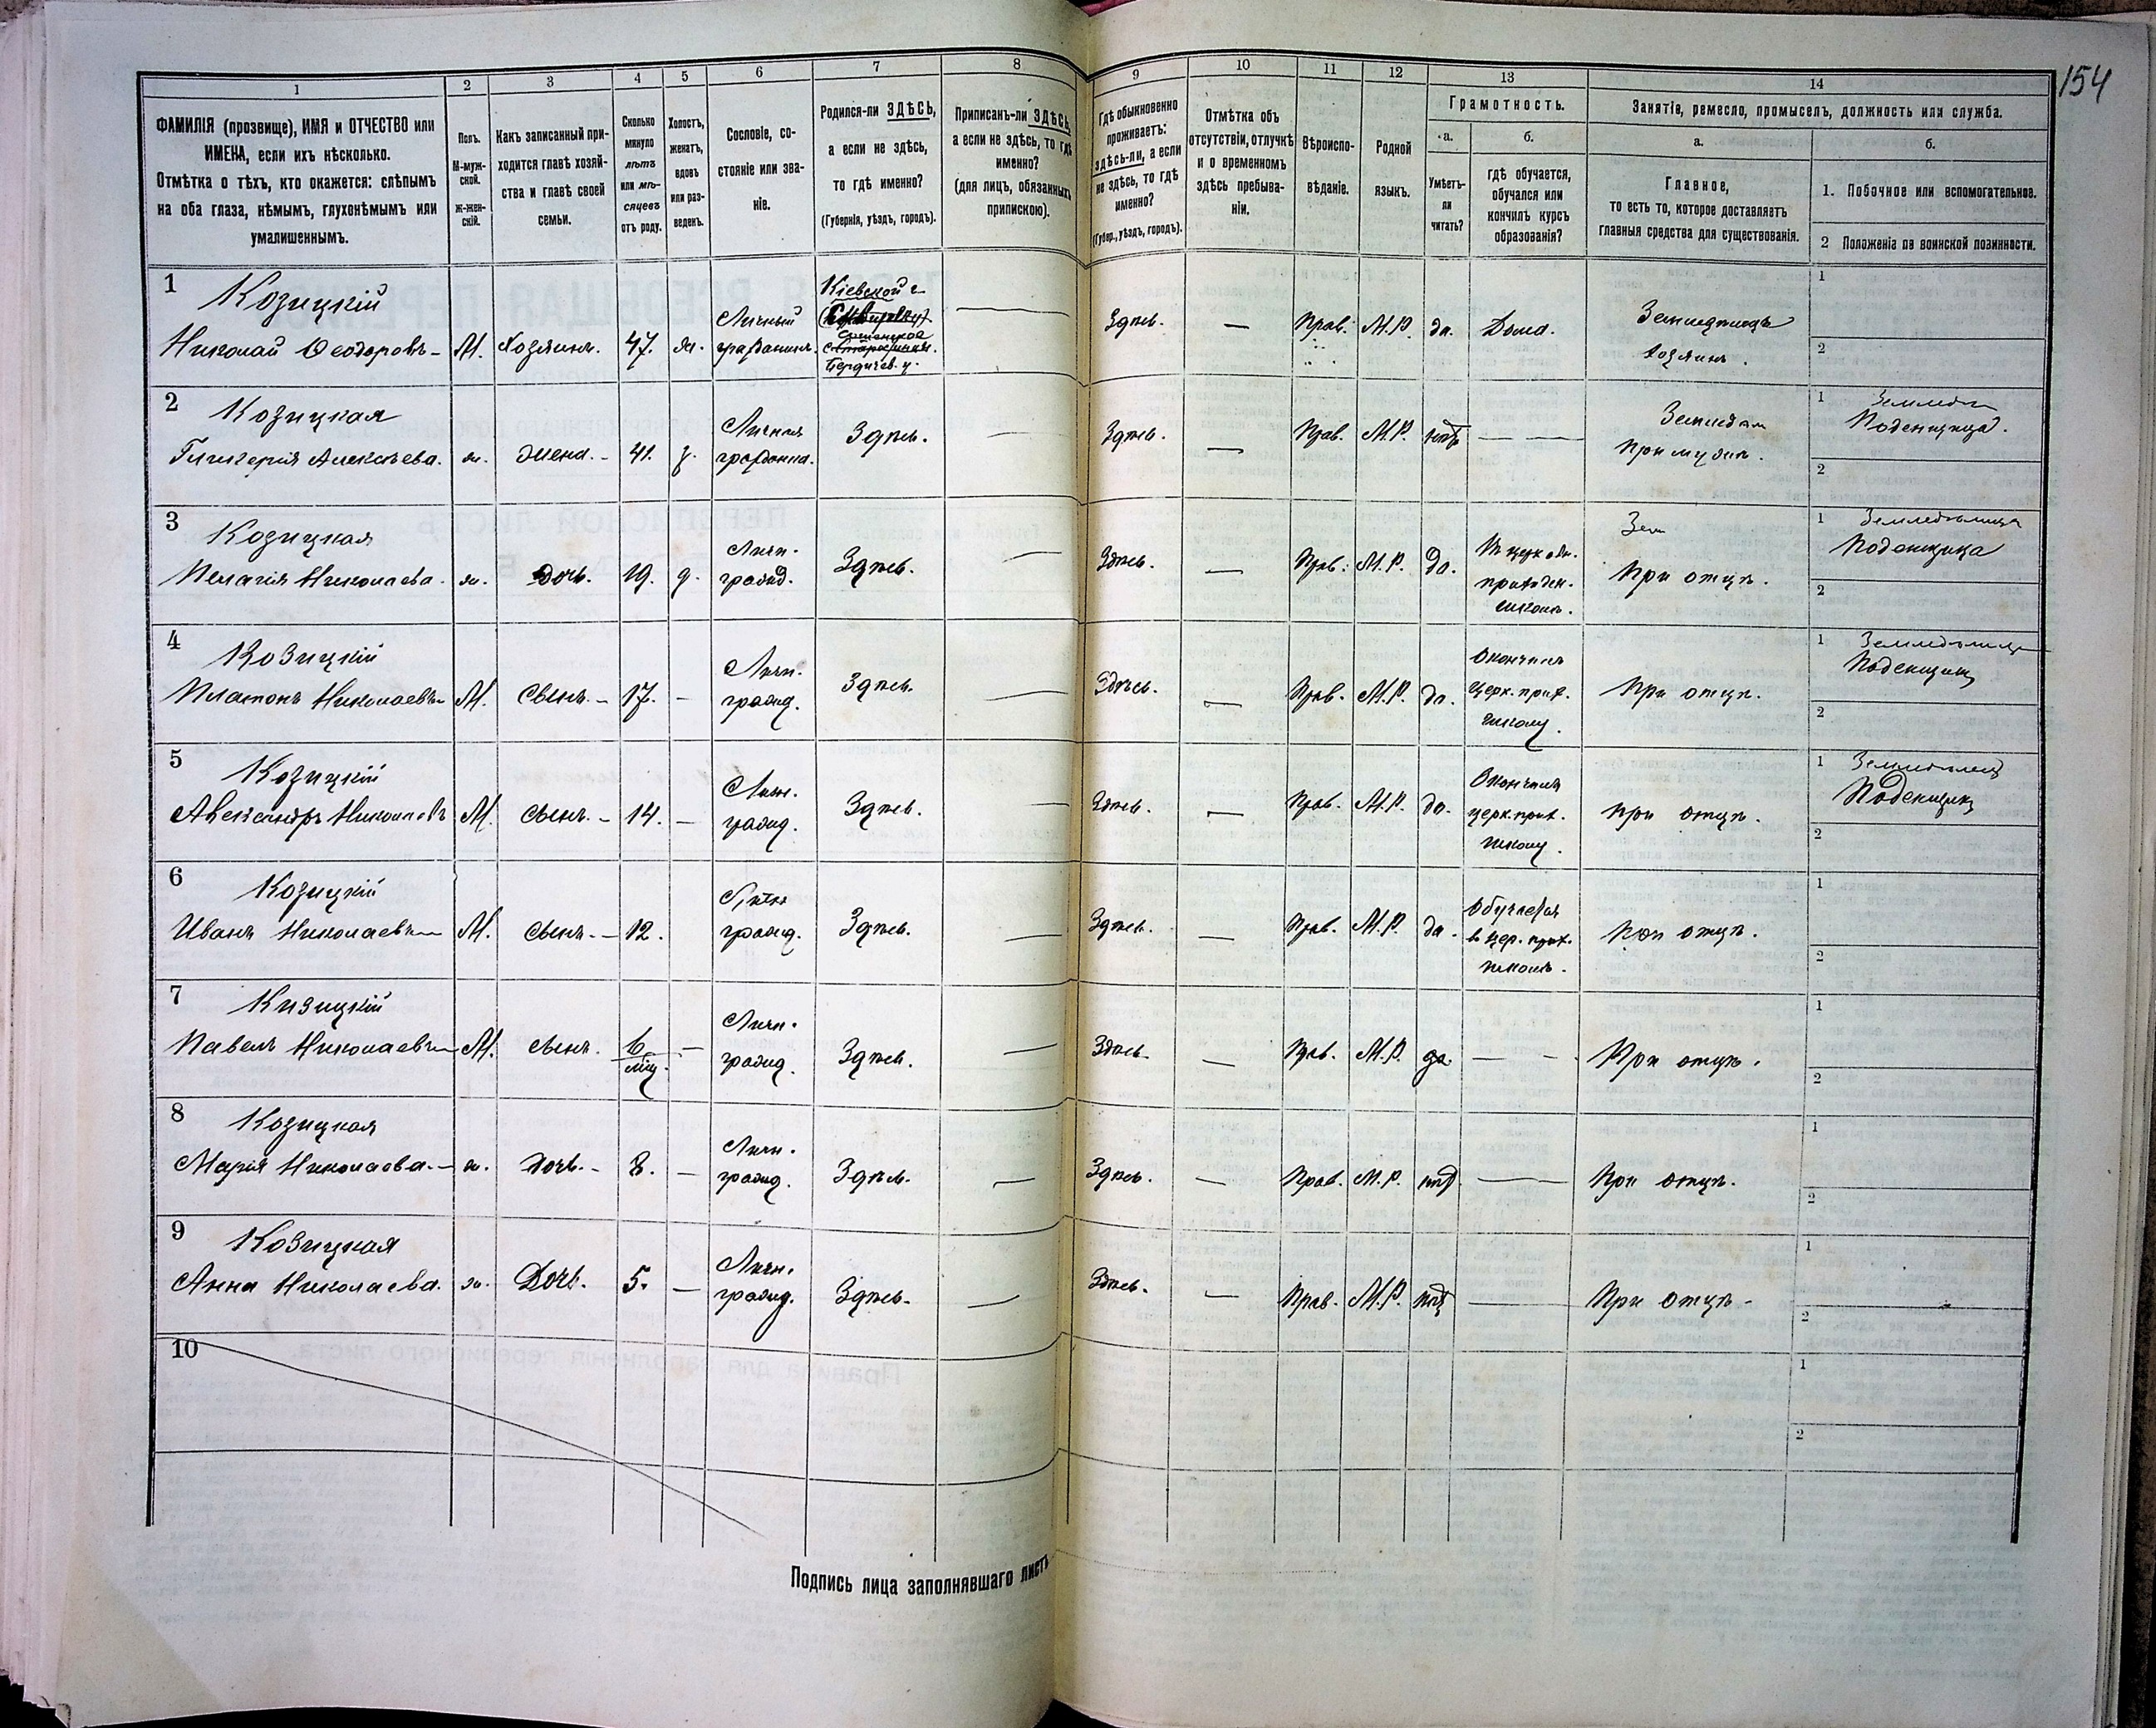 154
1 2 3 4 5 6 7 8 9 10 11 12 13 14
ФАМИЛІЯ (прозвище), ИМЯ и ОТЧЕСТВО или
ИМЕНА, если ихъ нѣсколько.
Отмѣтка о тѣхъ, кто окажется: слѣпымъ
на оба глаза, нѣмымъ, глухонѣмымъ или
умалишеннымъ.
Полъ.
М-муж-
ской.
ж-жен-
скій.
Какъ записанный при-
ходится главѣ хозяй-
ства и главѣ своей
семьи.
Сколько
минуло
лѣтъ
или мѣ-
сяцевъ
отъ роду.
Холостъ,
женатъ,
вдовъ
или раз-
веденъ.
Сословіе, со-
стояніе или зва-
ніе.
Родился-ли ЗДѢСЬ,
а если не здѣсь,
то гдѣ именно?
(Губернія, уѣздъ, городъ).
Приписанъ-ли ЗДѢСЬ,
а если не здѣсь, то гдѣ
именно?
(для лицъ, обязанныхъ
припискою).
Гдѣ обыкновенно
проживаетъ:
здѣсь-ли, а если
не здѣсь, то гдѣ
именно?
(Губер., уѣздъ, городъ).
Отмѣтка объ
отсутствіи, отлучкѣ
и о временномъ
здѣсь пребыва-
ніи.
Вѣроиспо-
вѣданіе.
Родной
языкъ.
Грамотность.
а.
Умѣетъ-
ли
читать?
б.
гдѣ обучается,
обучался или
кончилъ курсъ
образованія?
Занятіе, ремесло, промыселъ, должность или служба.
а.
Главное,
то есть то, которое доставляетъ
главныя средства для существованія.
б.
1. Побочное или вспомогательное.
2 Положеніе по воинской повинности.
1
Козицкій
Николай Ѳеодоровъ М. Хозяинъ. 47. ж.
Личный
гражданинъ.
Кіевской г.
Бердичев. у.
— Здѣсь. — Прав. М.Р. да. Дома.
Земледѣлецъ
хозяинъ.
1
2
2
Козицкая
Гликерія Алексѣева. ж. Жена. 41. з.
Личная
гражданка.
Здѣсь. — Здѣсь. — Прав. М.Р. нѣтъ — —
При мужѣ.
1
Поденщица.
2
3
Козицкая
Пелагія Николаева. ж. Дочь. 19. д.
Личн.
гражд.
Здѣсь. — Здѣсь. — Прав. М.Р. да.
приходск.
школѣ.
Зем
При отцѣ.
1 Земледѣлица
Поденщица
2
4
Козицкій
Платонъ Николаевъ М. Сынъ. 17. —
Личн.
гражд.
Здѣсь. — Здѣсь. — Прав. М.Р. да.
Окончилъ
церк. прих.
школу.
При отцѣ.
1
Поденщикъ
2
5
Козицкій
Александръ Николаевъ М. Сынъ. 14. —
Личн.
гражд.
Здѣсь. — Здѣсь. — Прав. М.Р. да.
Окончилъ
церк. прих.
школу.
При отцѣ.
1 Земледѣлец
Поденщикъ
2
6
Козицкій
Иванъ Николаевъ М. Сынъ. 12.
Личн
гражд.
Здѣсь. — Здѣсь. — Прав. М.Р. да.
Обучается
в цер. прих.
школѣ.
При отцѣ.
1
2
7
Козицкій
Павелъ Николаевъ М. Сынъ. 6 —
Личн.
гражд.
Здѣсь. — Здѣсь. — Прав. М.Р. да. — — При отцѣ.
1
2
8
Козицкая
Марія Николаева. ж. Дочь. 8. —
Личн.
гражд.
Здѣсь. — Здѣсь. — Прав. М.Р. нѣт. — При отцѣ.
1
2
9
Козицкая
Анна Николаева. ж. Дочь. 5. —
Личн.
гражд.
Здѣсь. — Здѣсь. — Прав. М.Р. нѣт — При отцѣ.
1
2
10
1
2
Подпись лица заполнявшаго листъ